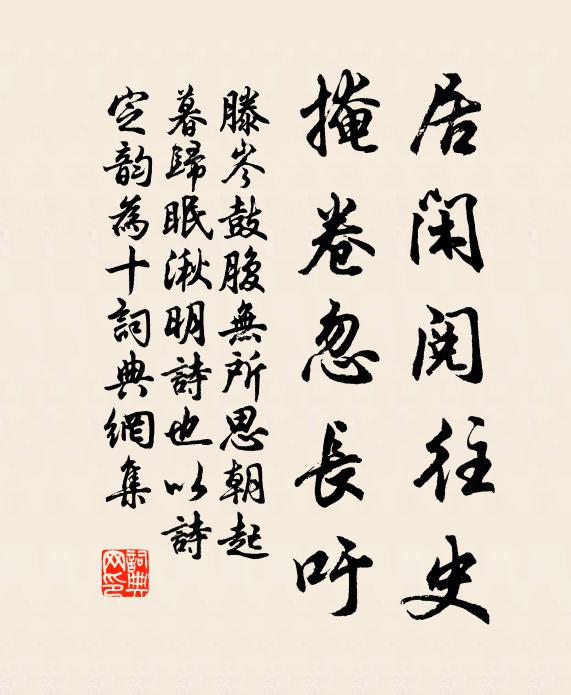 居閑閱往史
掩卷忽長吁
滕岑鼓腹無所思朝起
暮歸眠湫明詩也以詩
定韵為十詞典網集
詞典网印